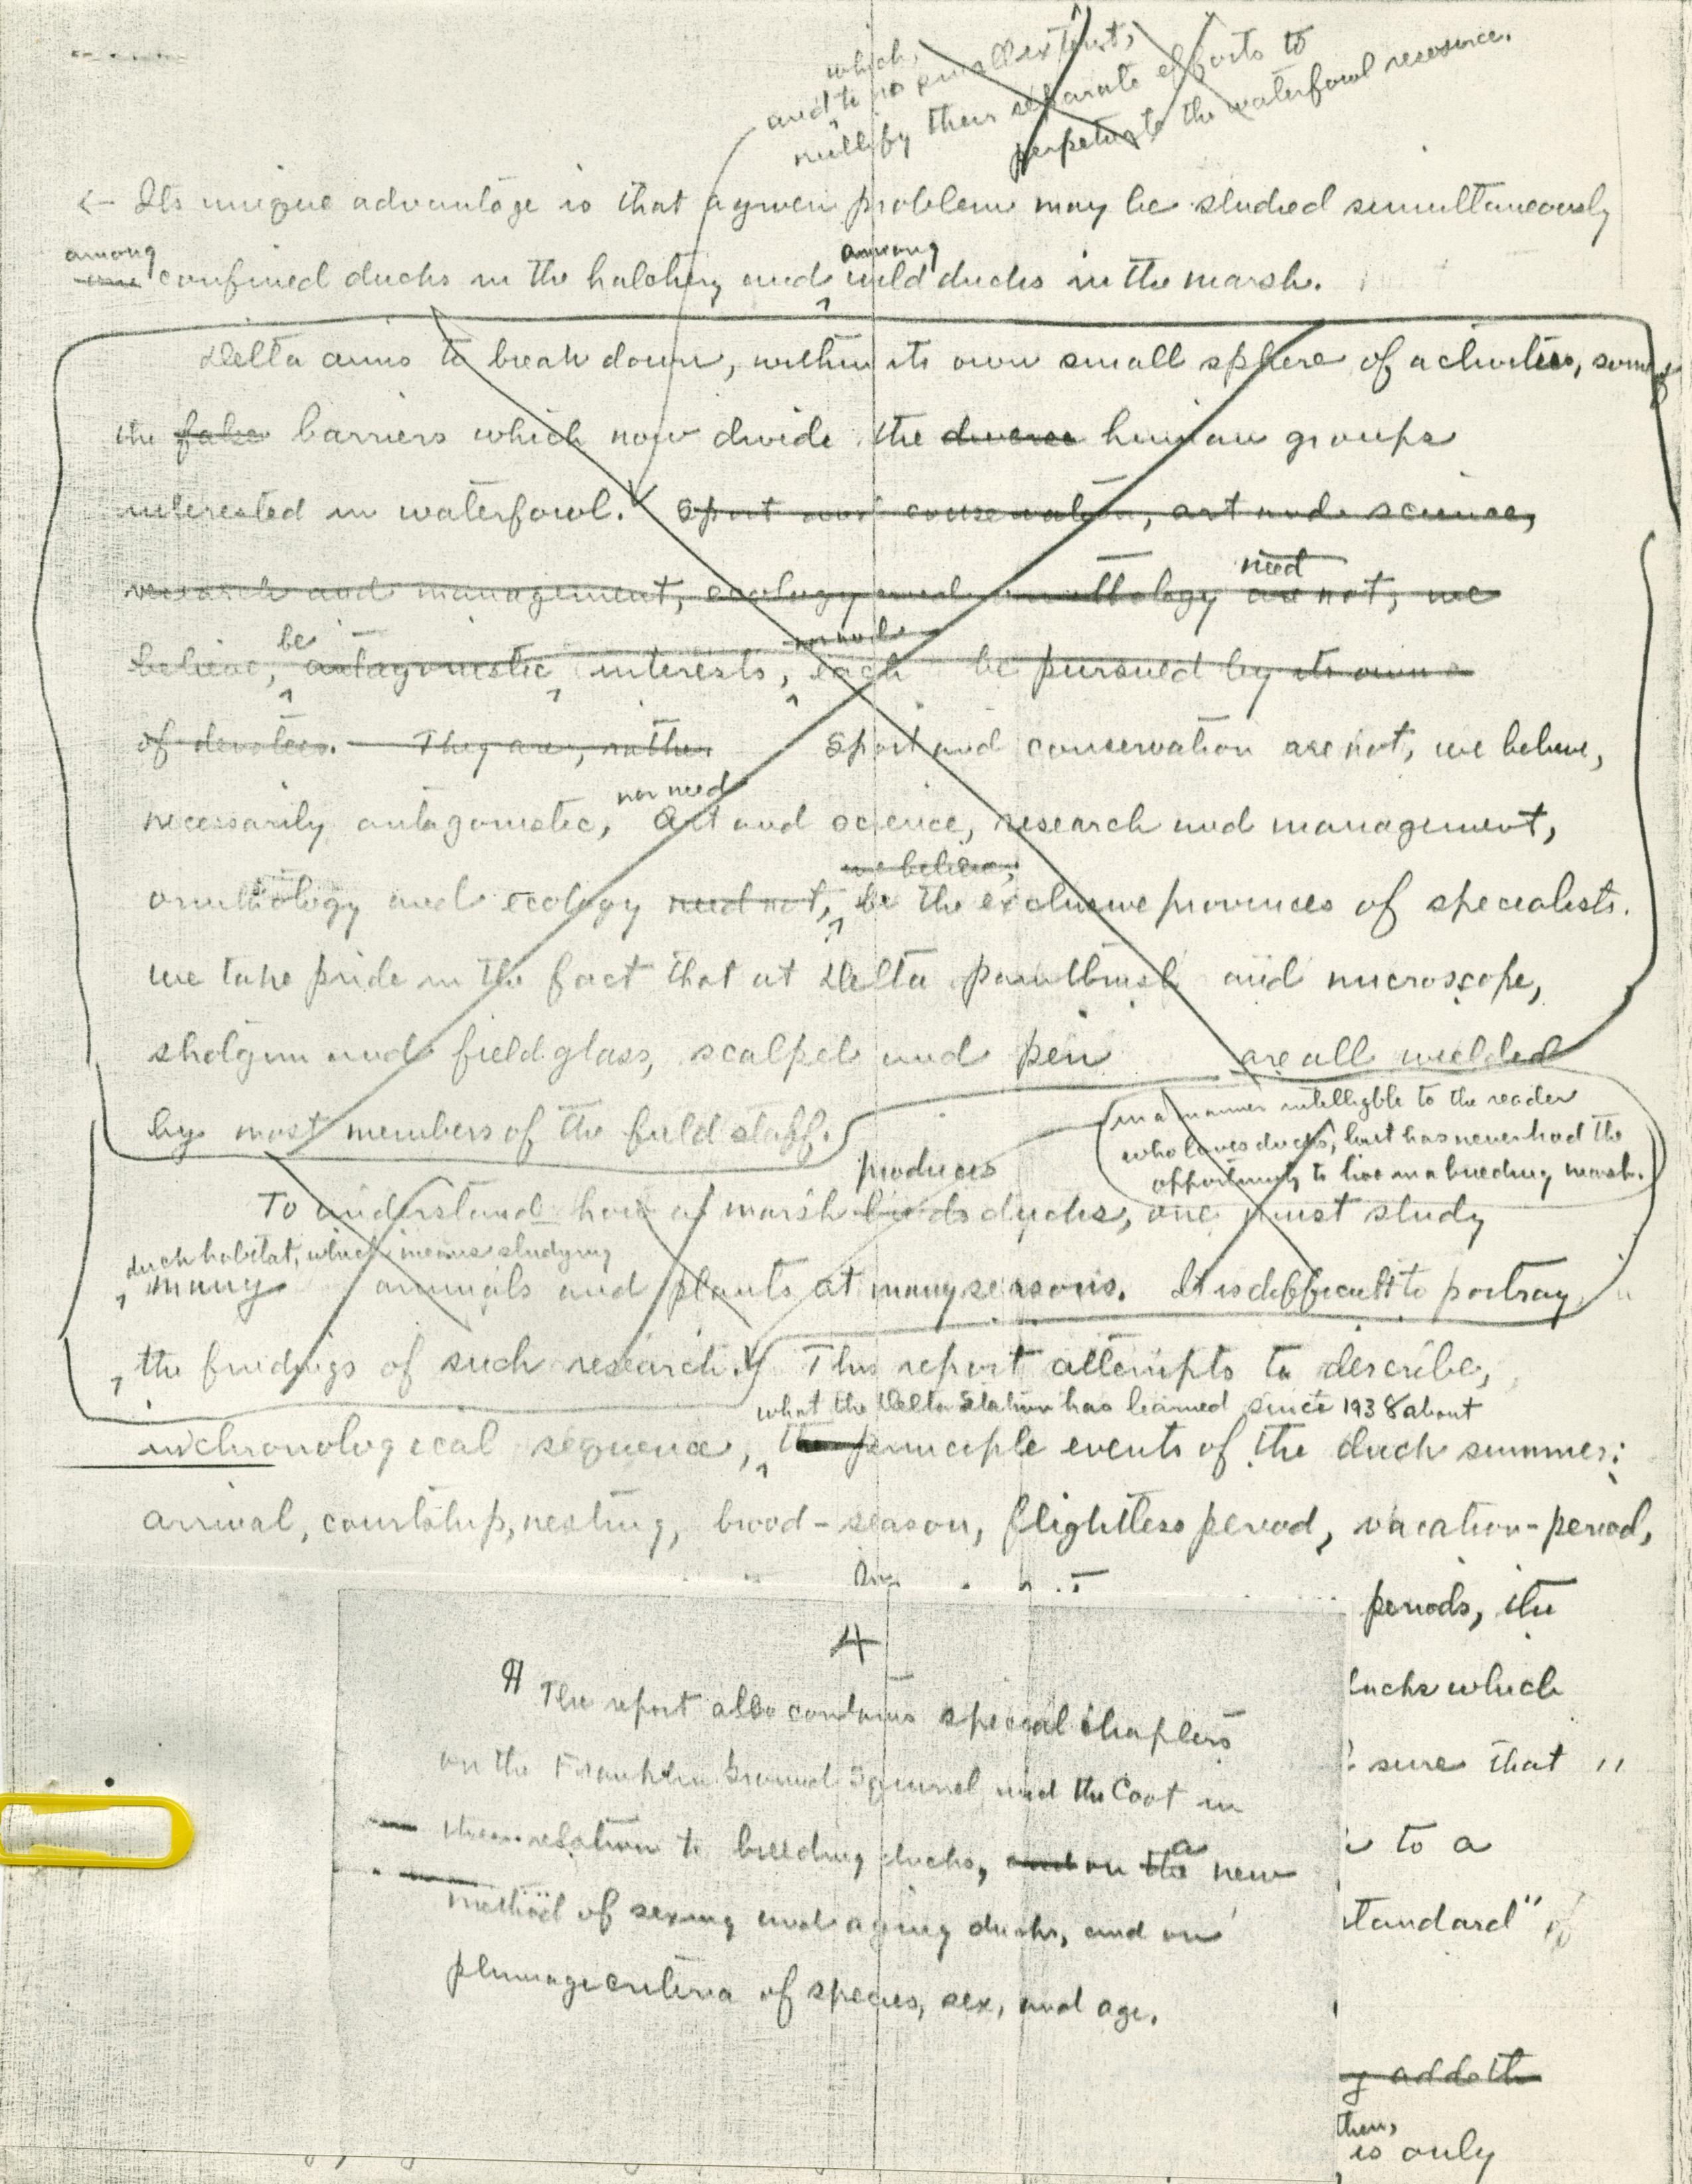 which,
and to no small extent,
nullify their separate efforts to
perpetuate the waterfowl resource.
<- Its unique advantage is that a given problem may be studied simultaneously
among among
confined ducks in the hatchery and wild ducks in the marsh.
Delta aims to break down, within its own small sphere of activities, some of
the false barriers which now divide the diverse human groups
interested in waterfowl. Sport and conservation, art and science,
need
research and management, ecology and ornithology are not, we
be nor need
believe, antagonistic interests, each be pursued by its own
of devotees. They are, rather Sport and conservation are not, we believe,
nor need
necessarily antagonistic, Art and science, research and management,
we believe,
ornithology and ecology need not, be the exclusive provinces of specialists.
we take pride in the fact that at Delta paintbrush and microscope,
shotgun and fieldglass, scalpel and pen are all wielded
by most members of the field staff.
in a manner intelligible to the reader
who loves ducks, but has never had the
opportunity to live in a breeding marsh.
produces
To understand how a marsh birds ducks, one must study
duck habitat, which means studying
many animals and plants at many seasons. It is difficult to portray
the findings of such research. This report attempts to describe,
what the Delta Station has learned since 1938 about
in chronological sequence, the principle events of the duck summer:
arrival, courtship, nesting, brood-season, flightless period, vacation-period,
periods, the
4
¶ The report also contains special chapters
ducks which
on the Franklin Ground Squirrel and the Coot in
sure that "
their relation to breeding ducks, and on the a new
to a
method of sexing and aging ducks, and on
standard" of
plumage criteria of species, sex, and age.
then,
is only